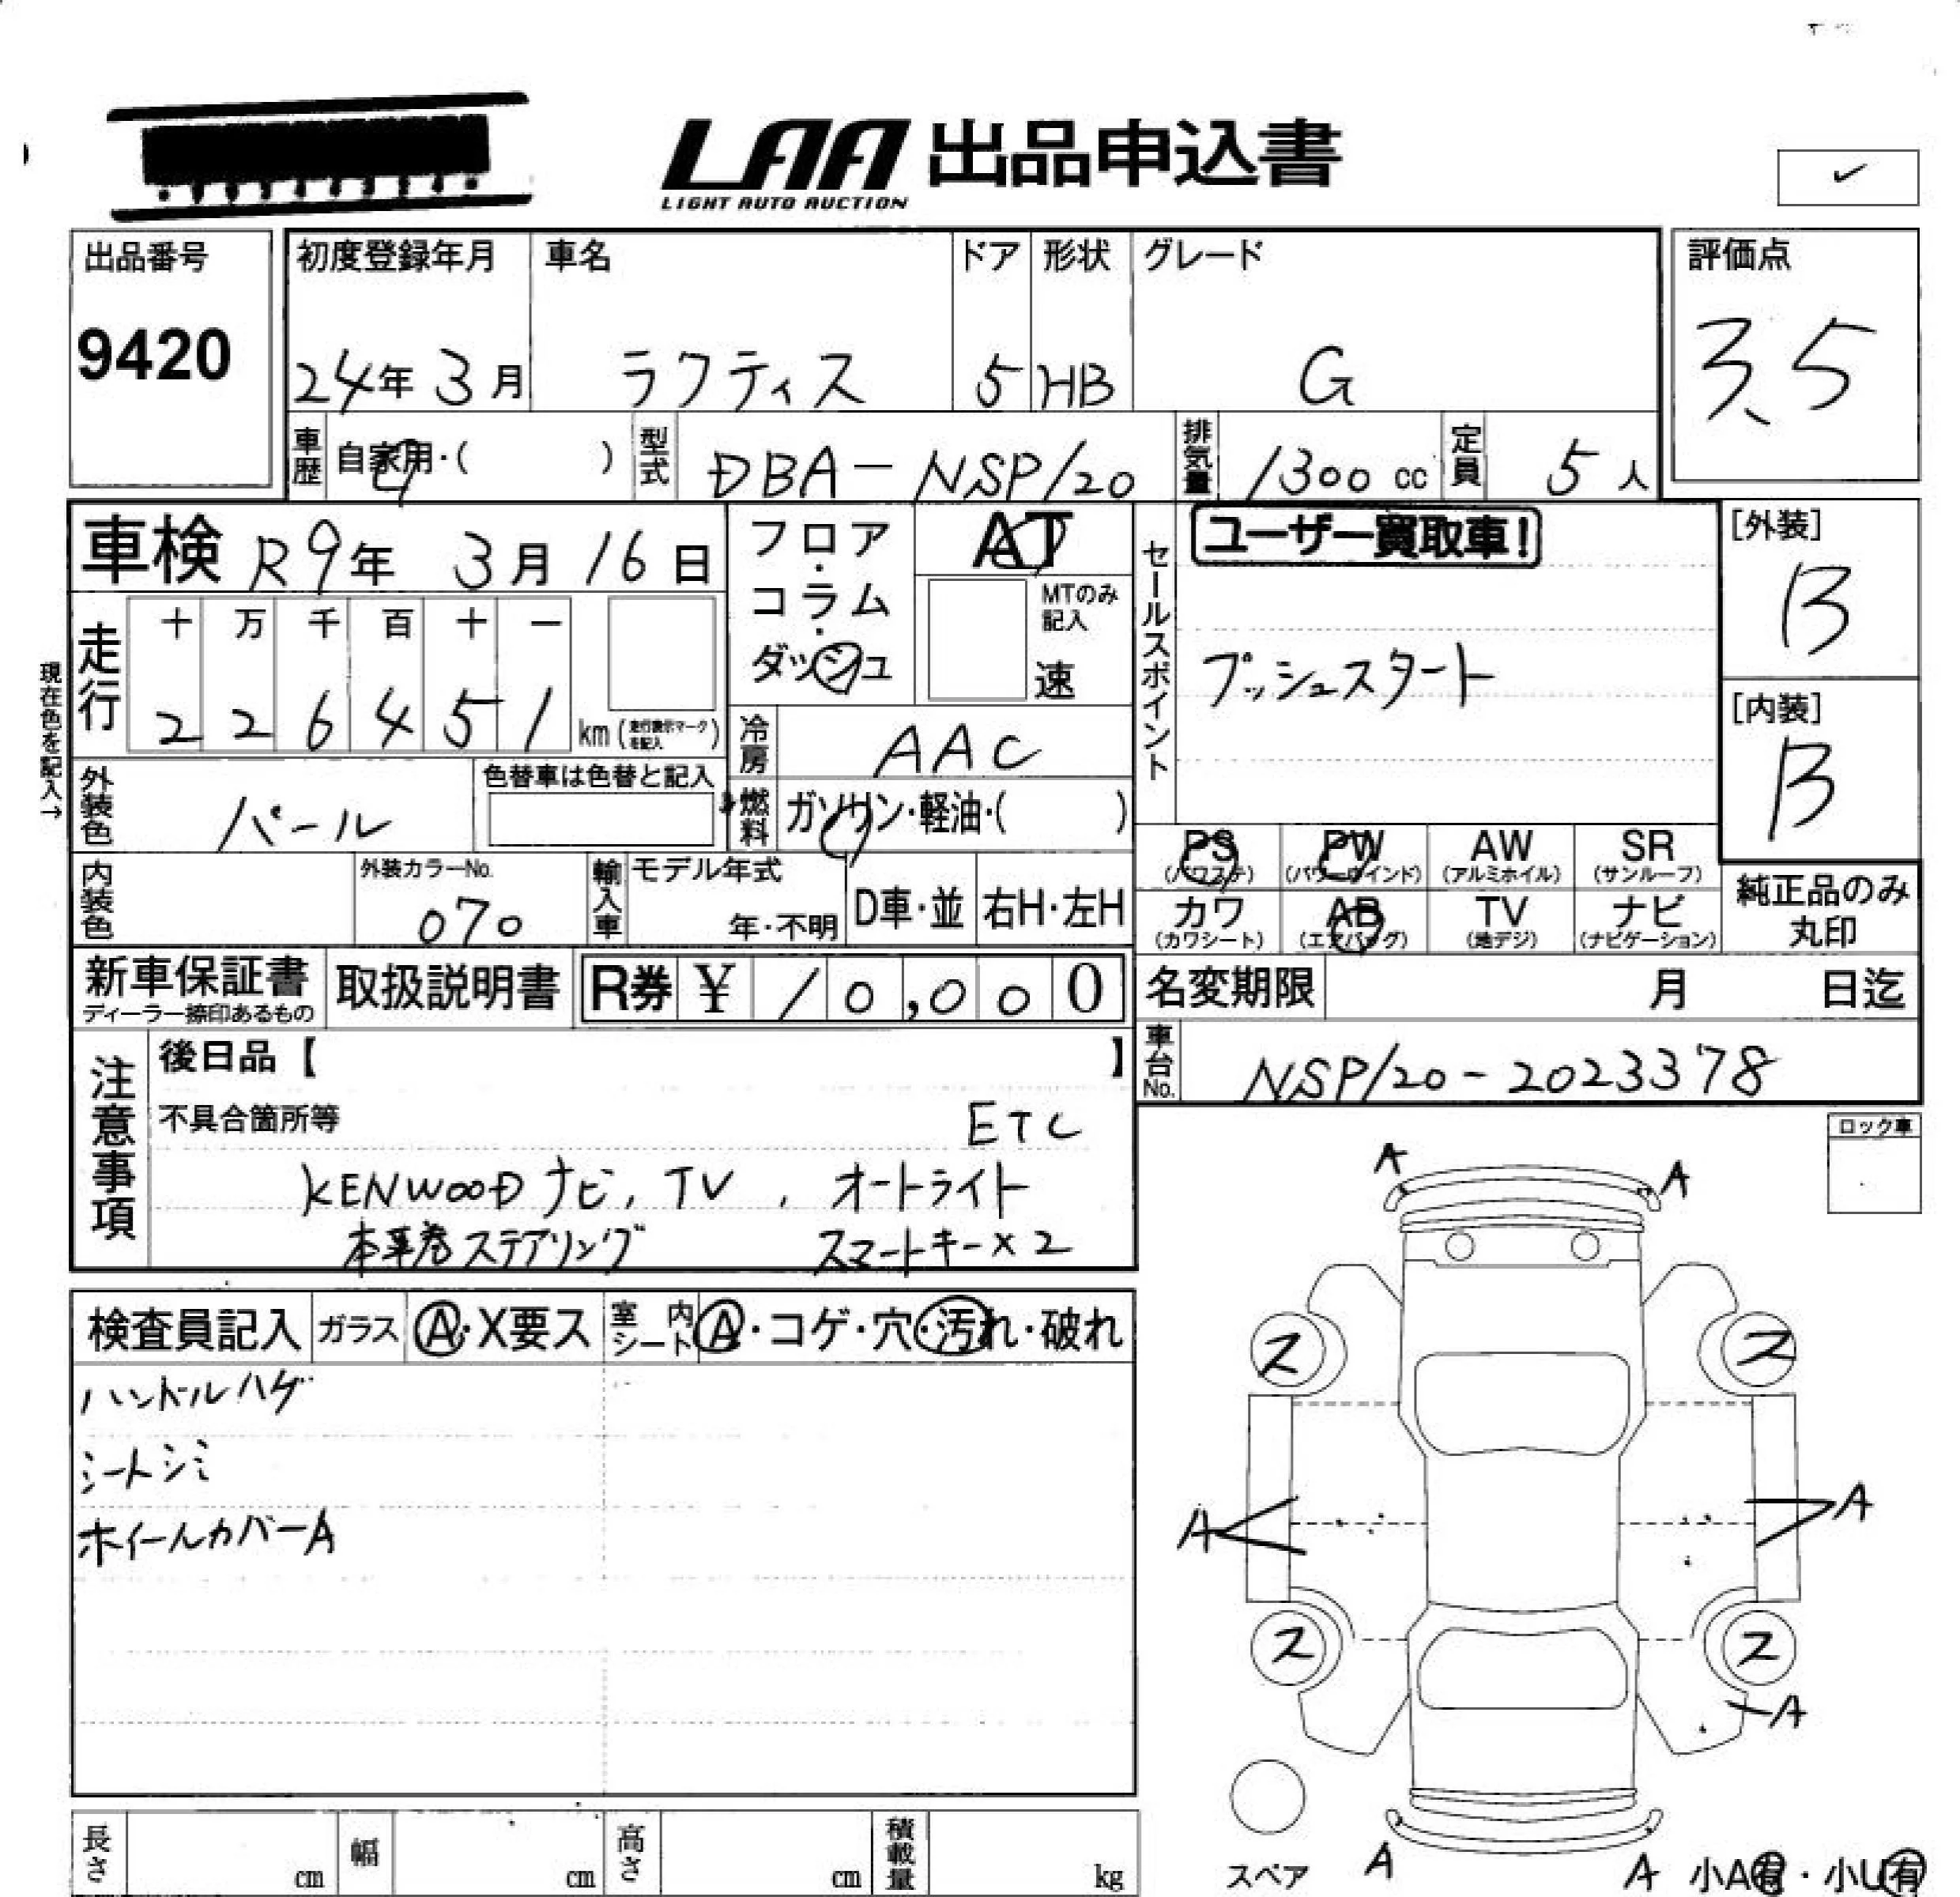 LAA 出品申込書
LIGHT AUTO AUCTION
出品番号
9420
初度登録年月
24年 3月
車名
ラクティス
ドア
5
形状
HB
グレード
G
評価点
3.5
車歴 自家用・( )
型式 DBA-NSP120
排気量 1300 cc
定員 5人
車検 R9年 3月 16日
走行
十 万 千 百 十 一
2 2 6 4 5 1 km (走行表示マークを記入)
現在色を記入→
フロア・コラム・ダッシュ
AT
MTのみ記入
速
冷房 AAC
燃料 ガソリン・軽油・( )
セールスポイント
ユーザー買取車!
プッシュスタート
[外装]
B
[内装]
B
外装色 パール
色替車は色替と記入
内装色
外装カラーNo.
070
輸入車
モデル年式
年・不明
D車・並
右H・左H
PS (パワステ)
PW (パワーウインド)
AW (アルミホイル)
SR (サンルーフ)
カワ (カワシート)
AB (エアバッグ)
TV (地デジ)
ナビ (ナビゲーション)
純正品のみ
丸印
新車保証書
ディーラー捺印あるもの
取扱説明書
R券 ¥ 10,000
名変期限 月 日迄
車台No. NSP120-2023378
注意事項
後日品【 】
不具合箇所等 ETC
KENWOODナビ, TV, オートライト
本革巻ステアリング スマートキー×2
ロック車
検査員記入
ガラス A・X要ス
室内シート A・コゲ・穴・汚れ・破れ
ハンドルハゲ
シートシミ
ホイールカバーA
A A
ス ス
A A
ス ス
A
スペア
A A
小A有・小U有
長さ cm
幅 cm
高さ cm
積載量 kg